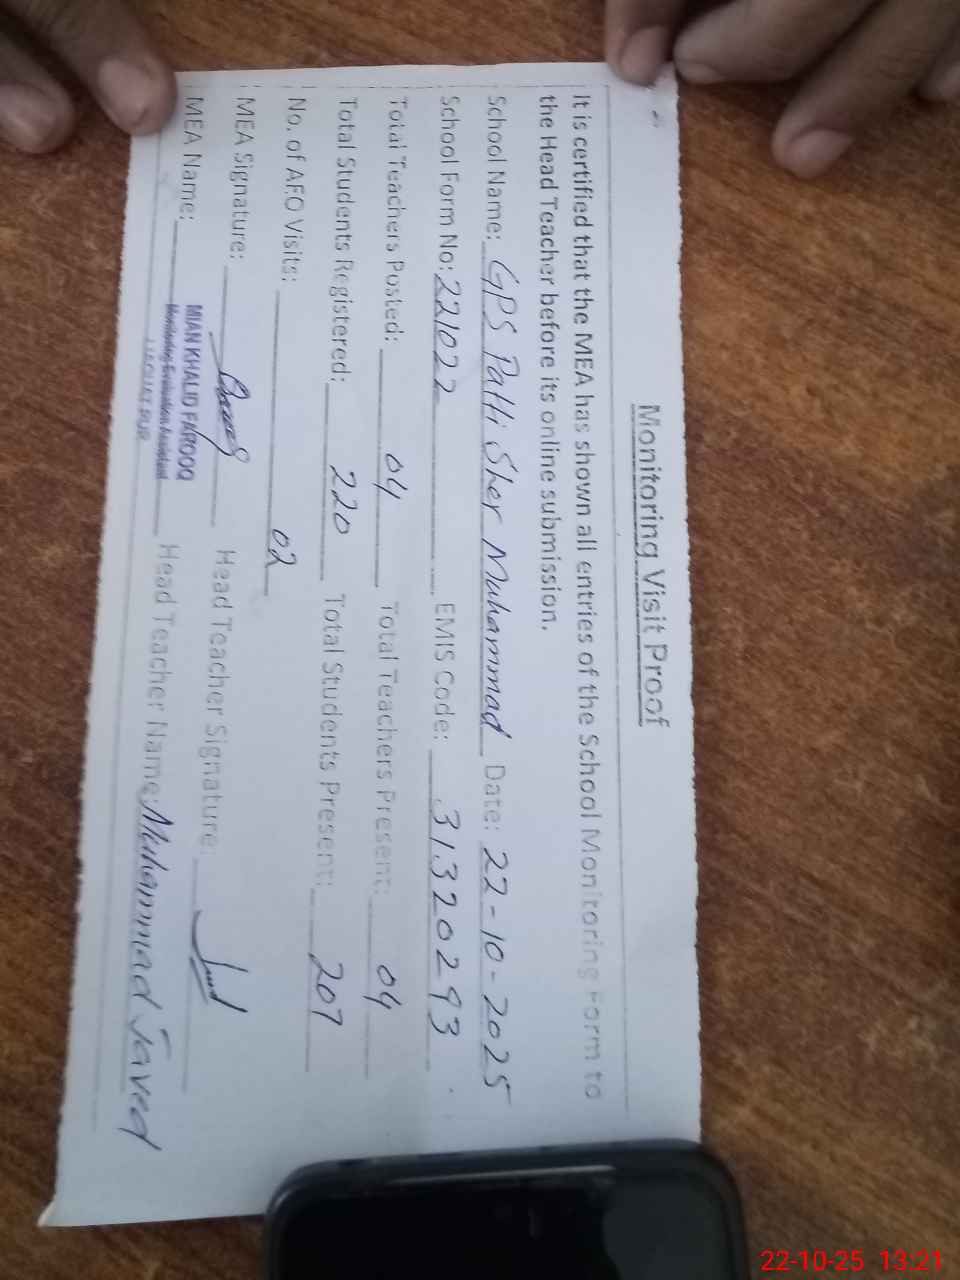 Monitoring Visit Proof
It is certified that the MEA has shown all entries of the School Monitoring Form to
the Head Teacher before its online submission.
School Name: GPS Patti Sher Muhammad Date: 22-10-2025
School Form No: 221022 EMIS Code: 31320293
Total Teachers Posted: 04 Total Teachers Present: 04
Total Students Registered: 220 Total Students Present: 207
No. of AEO Visits: 02
MEA Signature: Head Teacher Signature:
MEA Name: MIAN KHALID FAROOQ Head Teacher Name: Muhammad Javed
Monitoring Evaluation Assistant
LIAQUAT PUR
22-10-25 13:21